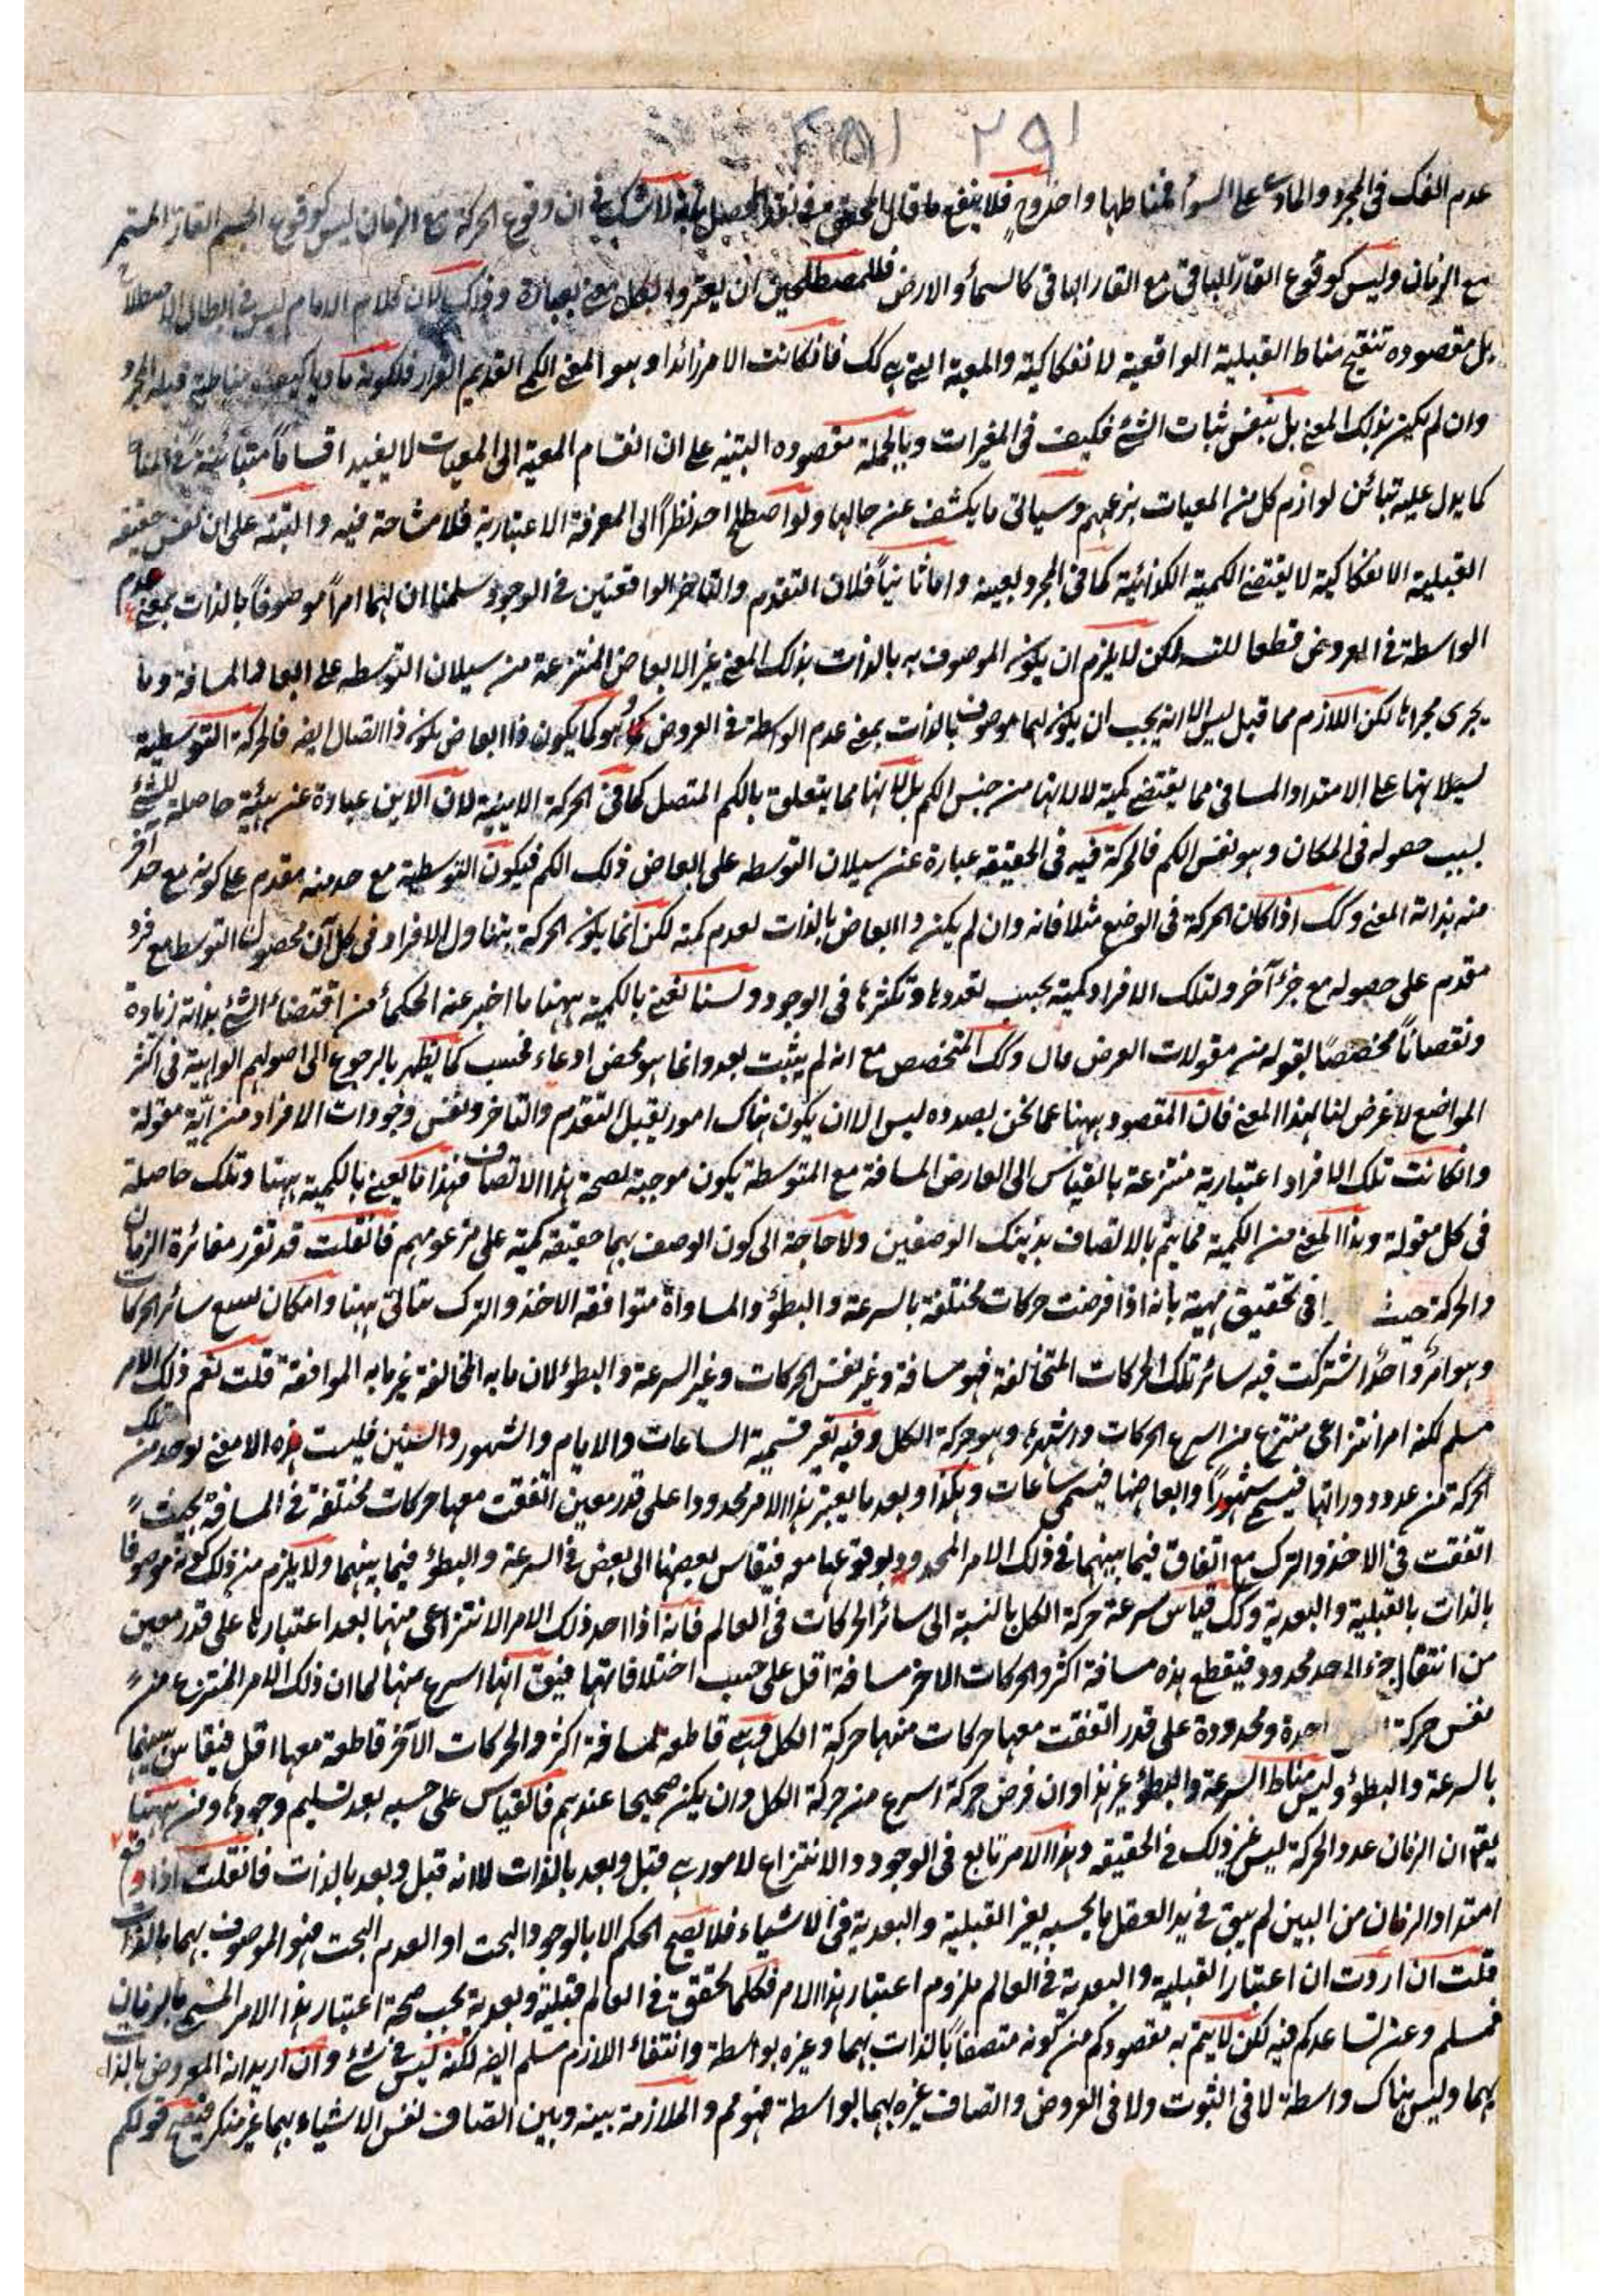 ٢٩١ ٢٥١
عدم الفك فى المجرد والمادى على السواء فمناطها واحد وح فلا ينفع ما قال المحقق فى نقد المحصل لا شك فى ان وقوع الحركة مع الزمان ليس كوقوع الجسم القار المستمر
مع الزمان وليس كوقوع القار الباقى مع القار الباقى كالسماء والارض فللمصطلحين ان يعبروا لكل معنى بعبارة وذلك لان كلام الامام ليس فى ابطال الاصطلاح
بل مقصوده تنقيح مناط القبلية الواقعية الانفكاكية والمعية التى هى كك فان كانت لامر زائد وهو المعنى الكمى القديم القرار فلكونه ماديا
وان لم يكن بذلك المعنى بل بنفس ثبات الشئ فكيف فى المغيرات وبالجملة مقصوده التنبيه على ان انقسام المعية الى المعيات لا يفيد اقساما متبائنة فى المناط
كما يدل عليه تبائن لوازم كل من المعيات بزعمهم وسياتى ما يكشف عن حالها ولو اصطلح احد نظرا الى المعرفة الاعتبارية فلا مشاحة فيه والتنبيه على ان نفس حقيقة
القبلية الانفكاكية لا يقتضى الكمية الكذائية كما فى المجرد بعينه واما ثانيا فلان التقدم والتاخر الواقعتين فى الوجود سلمنا ان لهما امرا موصوفا بالذات بمعنى عدم
الواسطة فى العروض قطعا للتسه لكن لا يلزم ان يكون الموصوف به بالذات بذلك المعنى غير الابعاض المنتزعة من سيلان التوسطه على ابعاد المسافة وما
يجرى مجراها لكن اللازم مما قيل ليس الا انه يجب ان يكون لهما موصوف بالذات بمعنى عدم الواسطة فى العروض وهو كما يكون ذا ابعاض يكون ذا اتصال ايضه فالحركة التوسطية
لسيلانها على الامتداد المسافى مما يقتضى كمية لا لانها من جنس الكم بل لانها مما يتعلق بالكم المتصل كما فى الحركة الاينية لان الاين عبارة عن هيئة حاصلة للشئ
بسبب حصوله فى المكان وهو نفس الكم فالحركة فيه فى الحقيقة عبارة عن سيلان التوسطه على ابعاض ذلك الكم فيكون التوسطية مع حد منه مقدم على كونه مع حد آخر
منه بذاته المعنى وكك اذا كان الحركة فى الوضع مثلا فانه وان لم يكن ذا ابعاض بالذات لعدم كميته لكن انما يكون الحركة بتناول الافراد فى كل آن فحصول التوسط مع فرد
مقدم على حصوله مع جزء آخر ولتلك الافراد كمية بحسب تعددها وتكثرها فى الوجود ولسنا نعنى بالكمية ههنا ما اخبر عنه الحكماء من اقتضاء الشئ بذاته زيادة
ونقصانا مخصصا بقوله من مقولات العرض مال وكك المتخصص مع انه لم يثبت بعد وانما هو محض ادعاء فحسب كما يظهر بالرجوع الى اصولهم الواهية فى اكثر
المواضع لا غرض لنا بهذا المعنى فان المقصود ههنا عما نحن بصدده ليس الا ان يكون هناك امور يقبل التقدم والتاخر ونفس وجودات الافراد من اية مقولة
وان كانت تلك الافراد اعتبارية منتزعة بالقياس الى العارض المسافة مع المتوسطة يكون موجبة لصحة هذا الاتصاف فهذا ما يعنى بالكمية ههنا وتلك حاصلة
فى كل مقولة وهذا المعنى من الكمية مما يتم بالاتصاف بذينك الوصفين ولا حاجة الى كون الوصف بهما حقيقة كمية على مزعومهم فان قلت قد تقرر مغائرة الزمان
والحركة حيث فى تحقيق مهية بانه اذا فرضت حركات مختلفة بالسرعة والبطؤ والمساواة متوافقة الاخذ والترك يتاتى ههنا وامكان لسع سائر الحركات
وهو امر واحد اشتركت فيه سائر تلك الحركات المتخالفة فهو مسافة وغير نفس الحركات وغير السرعة والبطؤ لان ما به المخالفة غير ما به الموافقة قلت نعم ذلك الامر
مسلم لكنه امر انتزاعى منتزع من اسرع الحركات واشهرها وهو حركة الكل وفيه تقرر قسمية الساعات والايام والشهور والسنين فليست هذه الا معنى يوخذ من تلك
الحركة من عدد دوراتها فيسمى شهورا وابعاضها فيسمى ساعات وهكذا وبعد ما يعتبر هذا الامر محدودا على قدر معين اتفقت معها حركات مختلفة فى المسافة بحيث
اتفقت فى الاخذ والترك مع اتفاق فيما بينهما فى ذلك الامر المحدود بوقوعها معه فيقاس بعضها الى بعض فى السرعة والبطؤ فيما بينهما ولا يلزم من ذلك كونه موصوفا
بالذات بالقبلية والبعدية وكك قياس سرعة حركة الكل بالنسبة الى سائر الحركات فى العالم فانه اذا احد ذلك الامر الانتزاعى منها بعد اعتبارها على قدر معين
من انتقال جزء الى حد محدود فيقطع هذه مسافة اكثر والحركات الاخر مسافة اقل على حسب اختلافاتهما فيق انها اسرع منها لما ان ذلك الامر المنتزع من
نفس حركة احدة ومحدودة على قدر اتفقت معها حركات منهما حركة الكل فهى قاطعة لمسافة اكثر والحركات الآخر قاطعة معها اقل فيقاس بينهما
بالسرعة والبطؤ وليس مناط السرعة والبطؤ غير هذا وان فرض حركة اسرع من حركة الكل وان يكن صحيحا عندهم فالقياس على حسبه بعد تسليم وجودها ومن ههنا
يعلم ان الزمان عدد الحركة ليس غير ذلك فى الحقيقة وهذا الامر تابع فى الوجود والانتزاع لامور هى قبل وبعد بالذات لا انه قبل وبعد بالذات فان قلت اذا رفع
امتداد الزمان من البين لم يبق فى يد العقل ما يحسبه يعبر القبلية والبعدية فى الاشياء فلا يصح الحكم الا بالوجود البحت او العدم البحت فهو الموصوف بهما بالذات
قلت ان اردت ان اعتبار القبلية والبعدية فى العالم ملزوم اعتبار هذا الامر فكلما تحقق فى العالم قبلية وبعدية يجب صحة اعتبار هذا الامر المسمى بالزمان
فمسلم وعن نساعدكم فيه لكن لا يتم به مقصودكم من كونه متصفا بالذات بهما وغيره بواسطة وانتفاء اللازم مسلم ايضه لكنه ليس فى شئ وان اريد انه المعروض بالذات
بهما وليس هناك واسطة لا فى الثبوت ولا فى العروض واتصاف غيره بهما بواسطة فهو مم والملازمة بينه وبين اتصاف نفس الاشياء بهما غير منكر فينتج قولكم